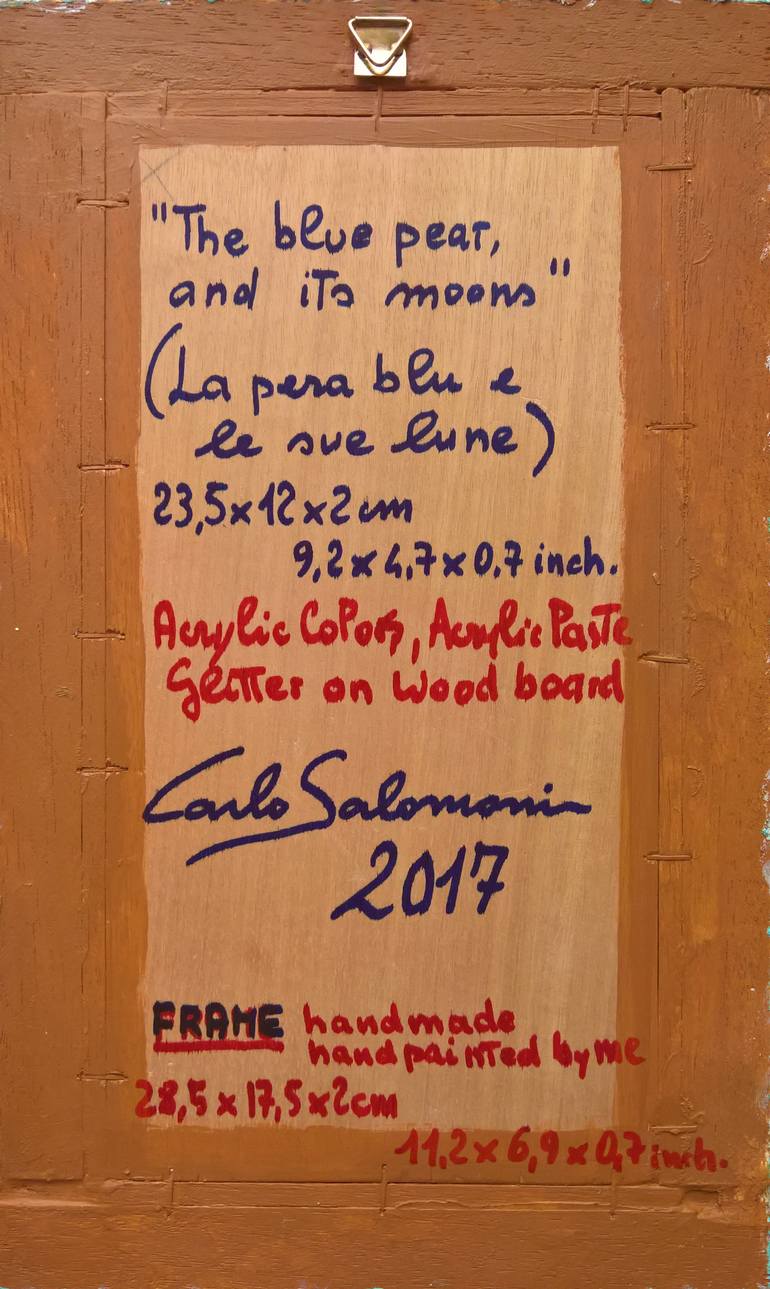 "The blue pear,
and its moons"
(La pera blu e
le sue lune)
23,5x12x2cm
9,2x4,7x0.7 inch.
Acrylic Colors, Acrylic Paste
Glitter on wood board
Carlo Salomoni
2017
FRAME handmade
handpainted by me
28,5 x 17,5x2cm
11,2 x 6,9 x 0,7 inch.